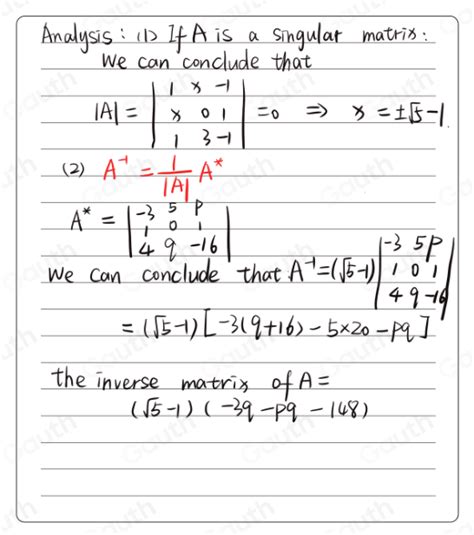 Analysis: (1) If A is a singular matrix:
We can conclude that
|A| = | 1 x -1 | = 0 ⇒ x = ±√5-1
| x 0 1 |
| 1 3 -1 |
(2) A⁻¹ = 1/|A| A*
A* = | -3 5 P |
| 1 0 1 |
| 4 9 -16 |
We can conclude that A⁻¹=(√5-1) | -3 5 P |
| 1 0 1 |
| 4 9 -16 |
= (√5-1) [-3(9+16) - 5×20 - P9]
the inverse matrix of A =
(√5-1) (-39 - P9 - 148)